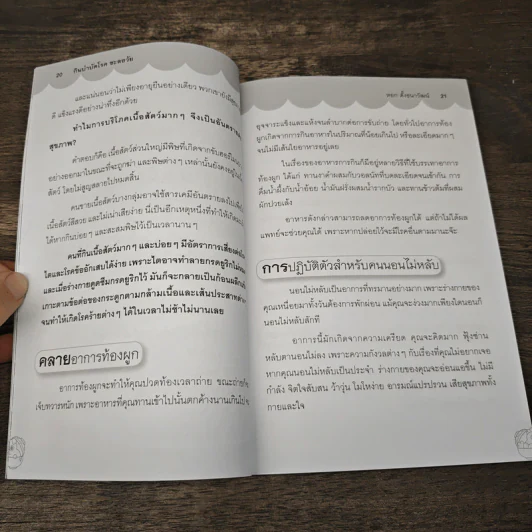 ๒๐ กินบำบัดโรค ชะลอวัย
และแน่นอนว่าไม่เพียงอายุยืนอย่างเดียว พวกเขายังสุขภาพ
ดี แข็งแรงดีอย่างน่าทึ่งอีกด้วย
ทำไมการบริโภคเนื้อสัตว์มากๆ จึงเป็นอันตราย
สุขภาพ?
คำตอบก็คือ เนื้อสัตว์ส่วนใหญ่มีพิษที่เกิดจากขับของเสีย
อย่างออกมาในขณะที่จะถูกฆ่า และพิษต่างๆ เหล่านั้นยังคงอยู่
สัตว์ โดยไม่สูญสลายไปหมดสิ้น
คนขายเนื้อสัตว์บางกลุ่มอาจใช้สารเคมีอันตราย
เนื้อสัตว์สีสวย และไม่เน่าเสียง่าย นี่เป็นอีกเหตุหนึ่งที่ทำให้เกิด
ได้หากกินบ่อยๆ และสะสมพิษไว้เป็นเวลานานๆ
คนที่กินเนื้อสัตว์มากๆ และบ่อยๆ มีอัตราการเสี่ยงต่อ
ไตและโรคข้ออักเสบได้ง่าย เพราะไตอาจทำลายกรดยูริกไม่
และเมื่อร่างกายดูดซึมกรดยูริกไว้ มันก็จะกลายเป็นก้อนผลึก
เกาะตามข้อต่อของกระดูกตามกล้ามเนื้อและเส้นประสาท
จนทำให้เกิดโรคร้ายต่างๆ ได้ในเวลาไม่ช้าไม่นานเลย
คลายอาการท้องผูก
อาการท้องผูกจะทำให้คุณปวดท้องเวลาถ่าย ขณะถ่าย
เจ็บทวารหนัก เพราะอาหารที่คุณทานเข้าไปนั้นตกค้างนานเกินไป
หฤทา ตั้งคุณาวัฒน์ ๒๑
อุจจาระแข็งและแห้งจนลำบากต่อการขับถ่าย โดยทั่วไปอาการท้อง
ผูกเกิดจากการกินอาหารในปริมาณที่น้อยเกินไป หรือละเอียดมากๆ
จนไม่มีเส้นใยอาหารอยู่เลย
ในเรื่องของอาหารการกินก็มีอยู่หลายวิธีที่ใช้บรรเทาอาการ
ท้องผูก ได้แก่ ทานงาดำผสมกับวอลนัทที่บดละเอียดจนเข้ากัน การ
ดื่มน้ำผึ้งกับน้ำอ้อย น้ำมันฝรั่งผสมน้ำราก​บัว และทานข้าวต้มที่ผสม
ผักปวยเล้ง
อาหารดังกล่าวสามารถลดอาการท้องผูกได้ แต่ถ้าไม่ได้ผล
แพทย์จะช่วยคุณได้ เพราะหากปล่อยไว้จะมีโรคอื่นตามมานะจ๊ะ
การปฏิบัติตัวสำหรับคนนอนไม่หลับ
นอนไม่หลับเป็นอาการที่ทรมานอย่างมาก เพราะร่างกายของ
คุณเหนื่อยมาทั้งวันต้องการพักผ่อน แม้คุณจะง่วงมากเพียงใดนอนก็
นอนไม่หลับสักที
อาการนี้มักเกิดจากความเครียด คุณจะคิดมาก ฟุ้งซ่าน
หลับตานอนไม่ลง เพราะความกังวลต่างๆ กับเรื่องที่คุณไม่อยากเจอ
หากคุณนอนไม่หลับเป็นประจำ ร่างกายของคุณจะอ่อนแอขึ้น ไม่มี
กำลัง จิตใจสับสน ว้าวุ่น โมโหง่าย อารมณ์แปรปรวน เสียสุขภาพทั้ง
กายและใจ